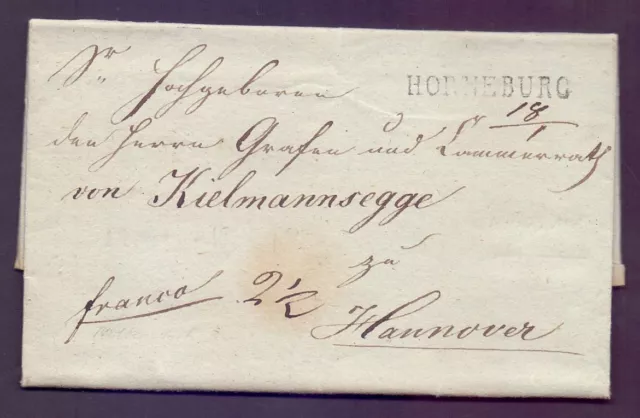 Sr Hochgeboren
HORNEBURG
18/1
den Herrn Grafen und Cammerrath
von Kielmannsegge
zu
franco 2 1/2
Hannover